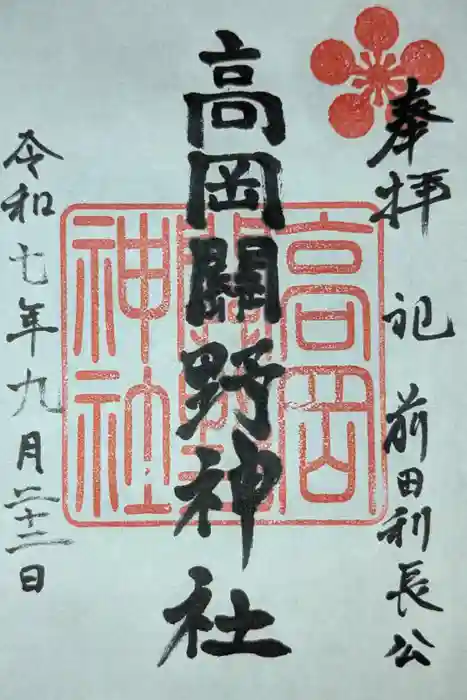 奉拝 祀 前田利長公
高岡關野神社
高岡
關野
神社
令和七年九月二十二日